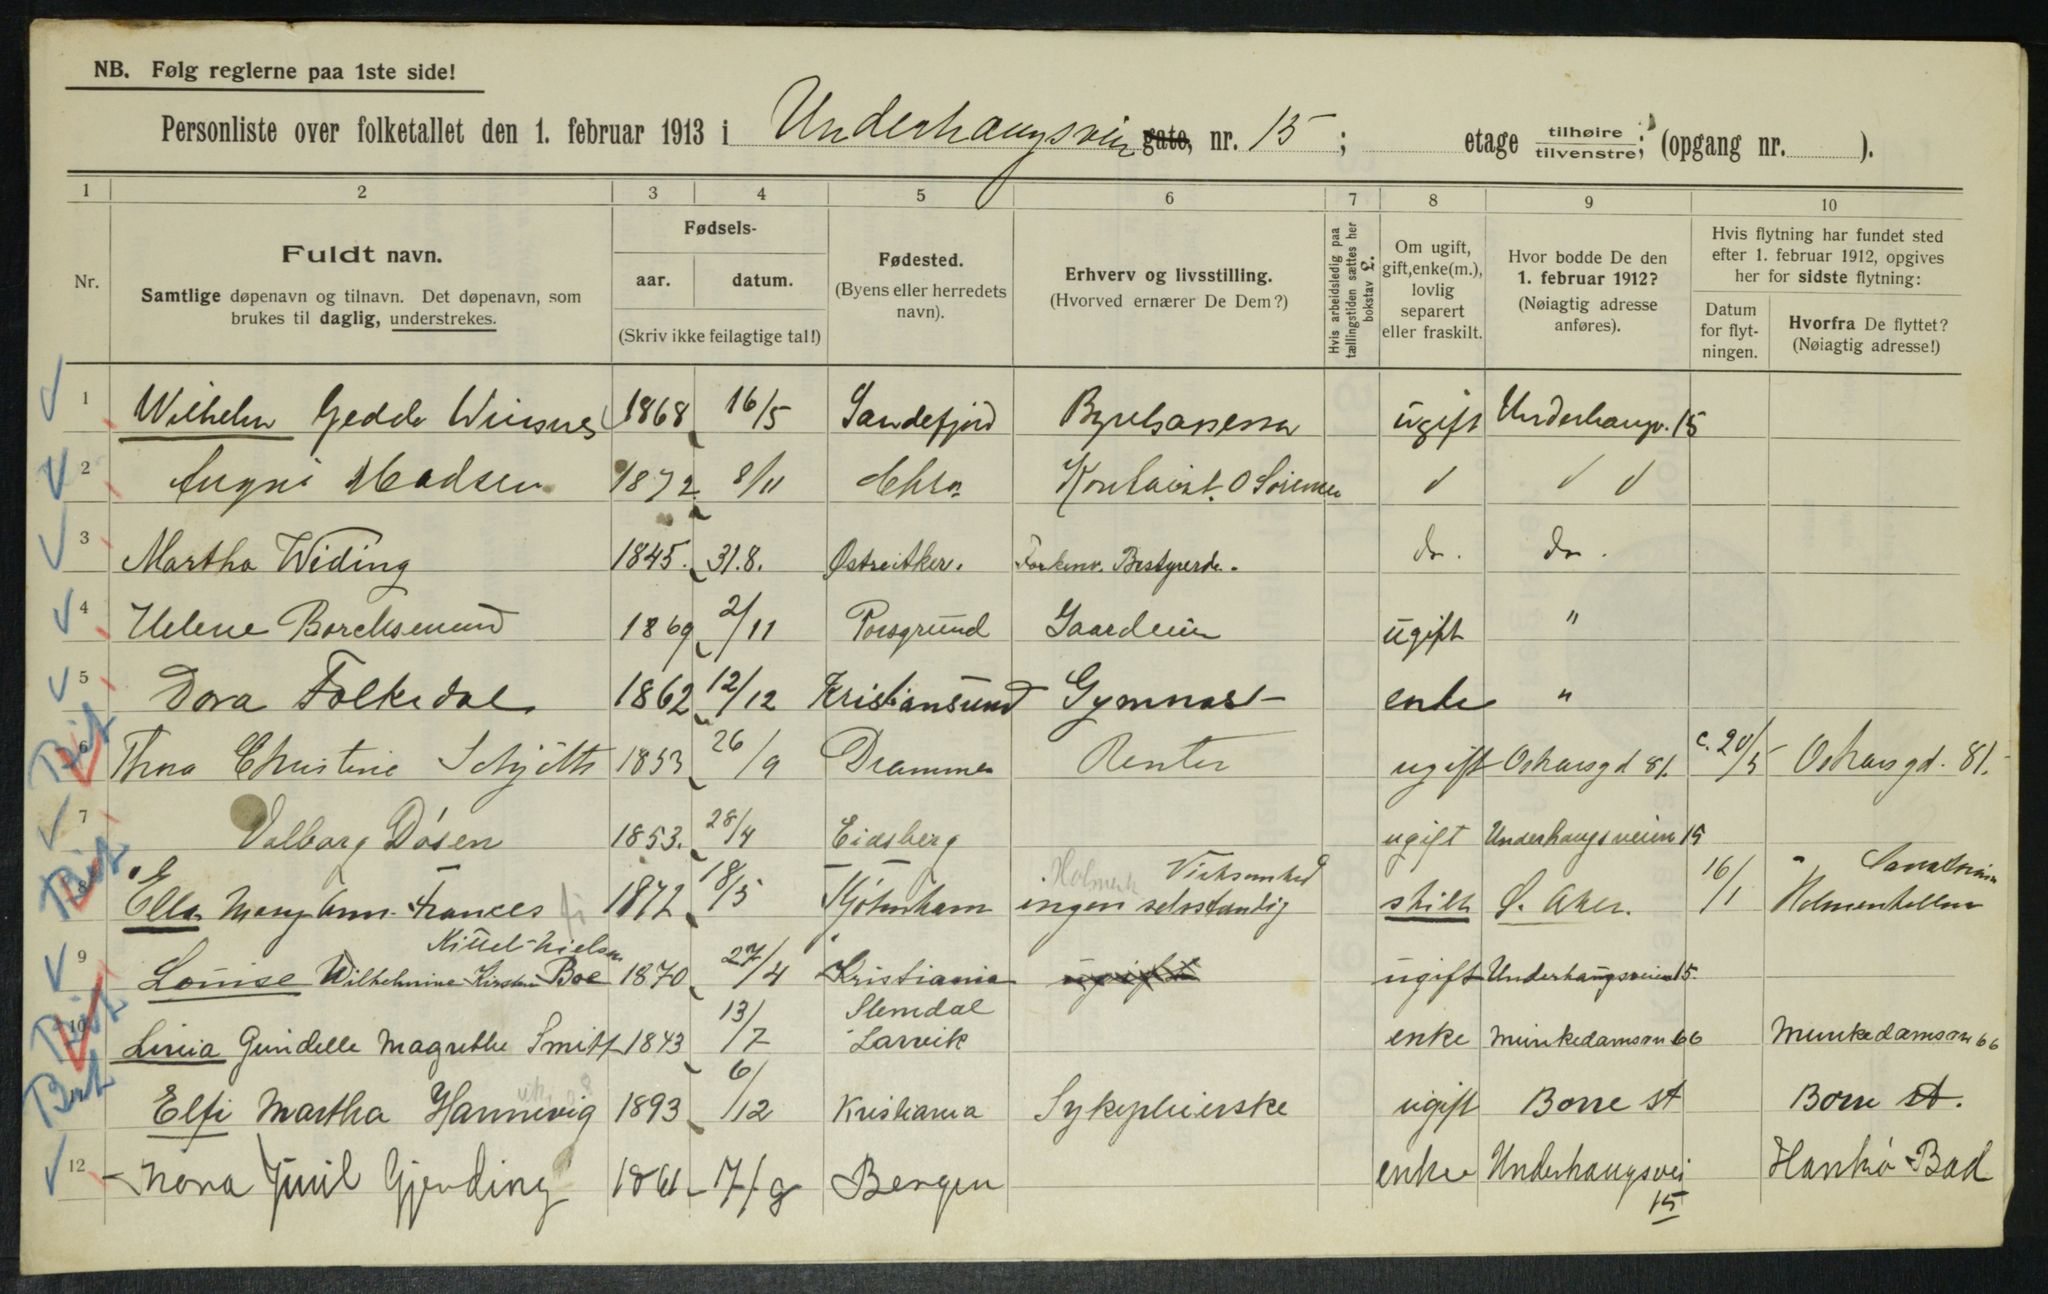 NB. Følg reglerne paa 1ste side!
Personliste over folketallet den 1. februar 1913 i Underhaugsveien gate, nr. 15; etage tilhøire tilvenstre; (opgang nr. ).
1 2 3 4 5 6 7 8 9 10
Nr.
Fuldt navn.
Samtlige døpenavn og tilnavn. Det døpenavn, som
brukes til daglig, understrekes.
Fødsels-
aar. datum.
(Skriv ikke feilagtige tal!)
Fødested.
(Byens eller herredets
navn).
Erhverv og livsstilling.
(Hvorved ernærer De Dem?)
Hvis arbeidsledig paa
tællingstiden sættes her
bokstav £.
Om ugift,
gift, enke(m.),
lovlig
separert
eller fraskilt.
Hvor bodde De den
1. februar 1912?
(Nøiagtig adresse
anføres).
Hvis flytning har fundet sted
efter 1. februar 1912, opgives
her for sidste flytning:
Datum
for flyt-
ningen.
Hvorfra De flyttet?
(Nøiagtig adresse!)
1 Wilhelm Gedde 1868 16/5 Sandefjord ugift Underhaugv. 15
2 Madsen 1872 8/11 Chra
3 Martha Widing 1845. 31.8. Østre Aker. Bestyrerde. do. do.
4 Helene Borchsenius 1869 2/11 Porsgrund ugift "
5 Dora Folkedal 1862 12/12 Kristiansund Gymnast enke "
6 Thora Christine Schjøtt 1853 26/9 Drammen Renter ugift Oskarsgd 81. c. 20/5 Oskarsgd. 81.
7 Valborg Døsen 1853. 28/4 Eidsberg ugift Underhaugsveien 15
8 Ella Mary Ann Frances 1872 18/5 ingen selvstændig Virksomhed skilt S. Aker. 16/1 Holmenkollen
Kittel-Nielsen
9 Louise Wilhelmine Kirstine Boe 1870 27/4 Kristiania ugift ugift Underhaugsveien 15.
Slemdal
10 Gundelle Magrethe Smith 1843 13/7 Larvik enke Munkedamsvn 66 Munkedamsvn 66
Elfi Martha Hannevig 1893 6/12 Kristiania Sykepleierske ugift Borre st Borre st.
12 Nora Juul Gjerding 1861 7/9 Bergen enke Underhaugsvei
15
Hankø Bad